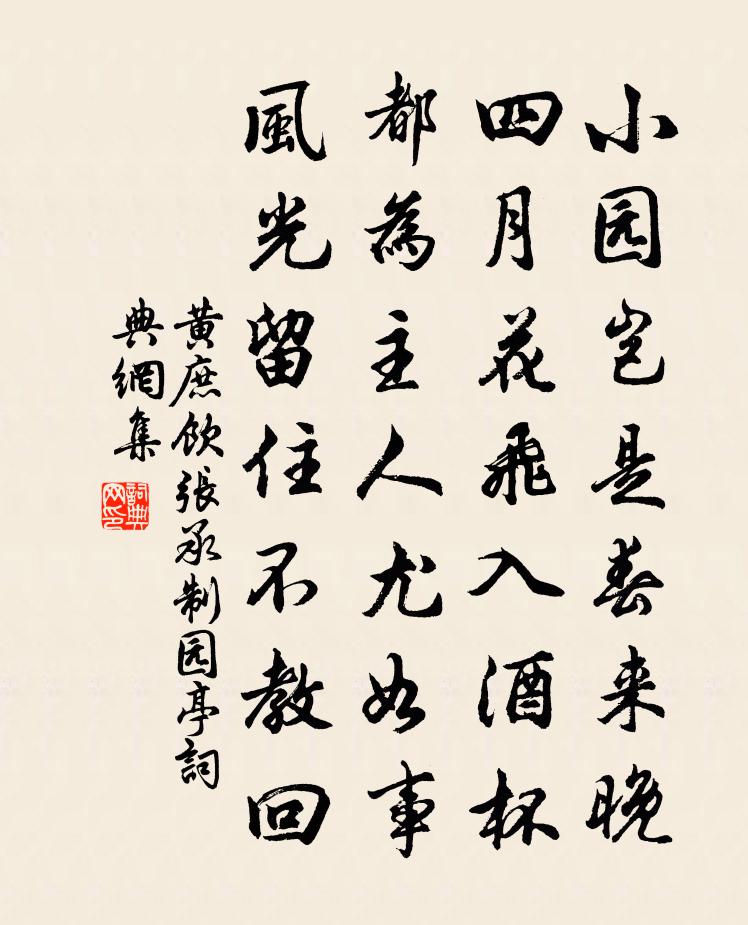 小园岂是春来晚
四月花飛入酒杯
都為主人尤好事
風光留住不教回
黄庶飲張承制园亭詞
典網集
詞典
网印